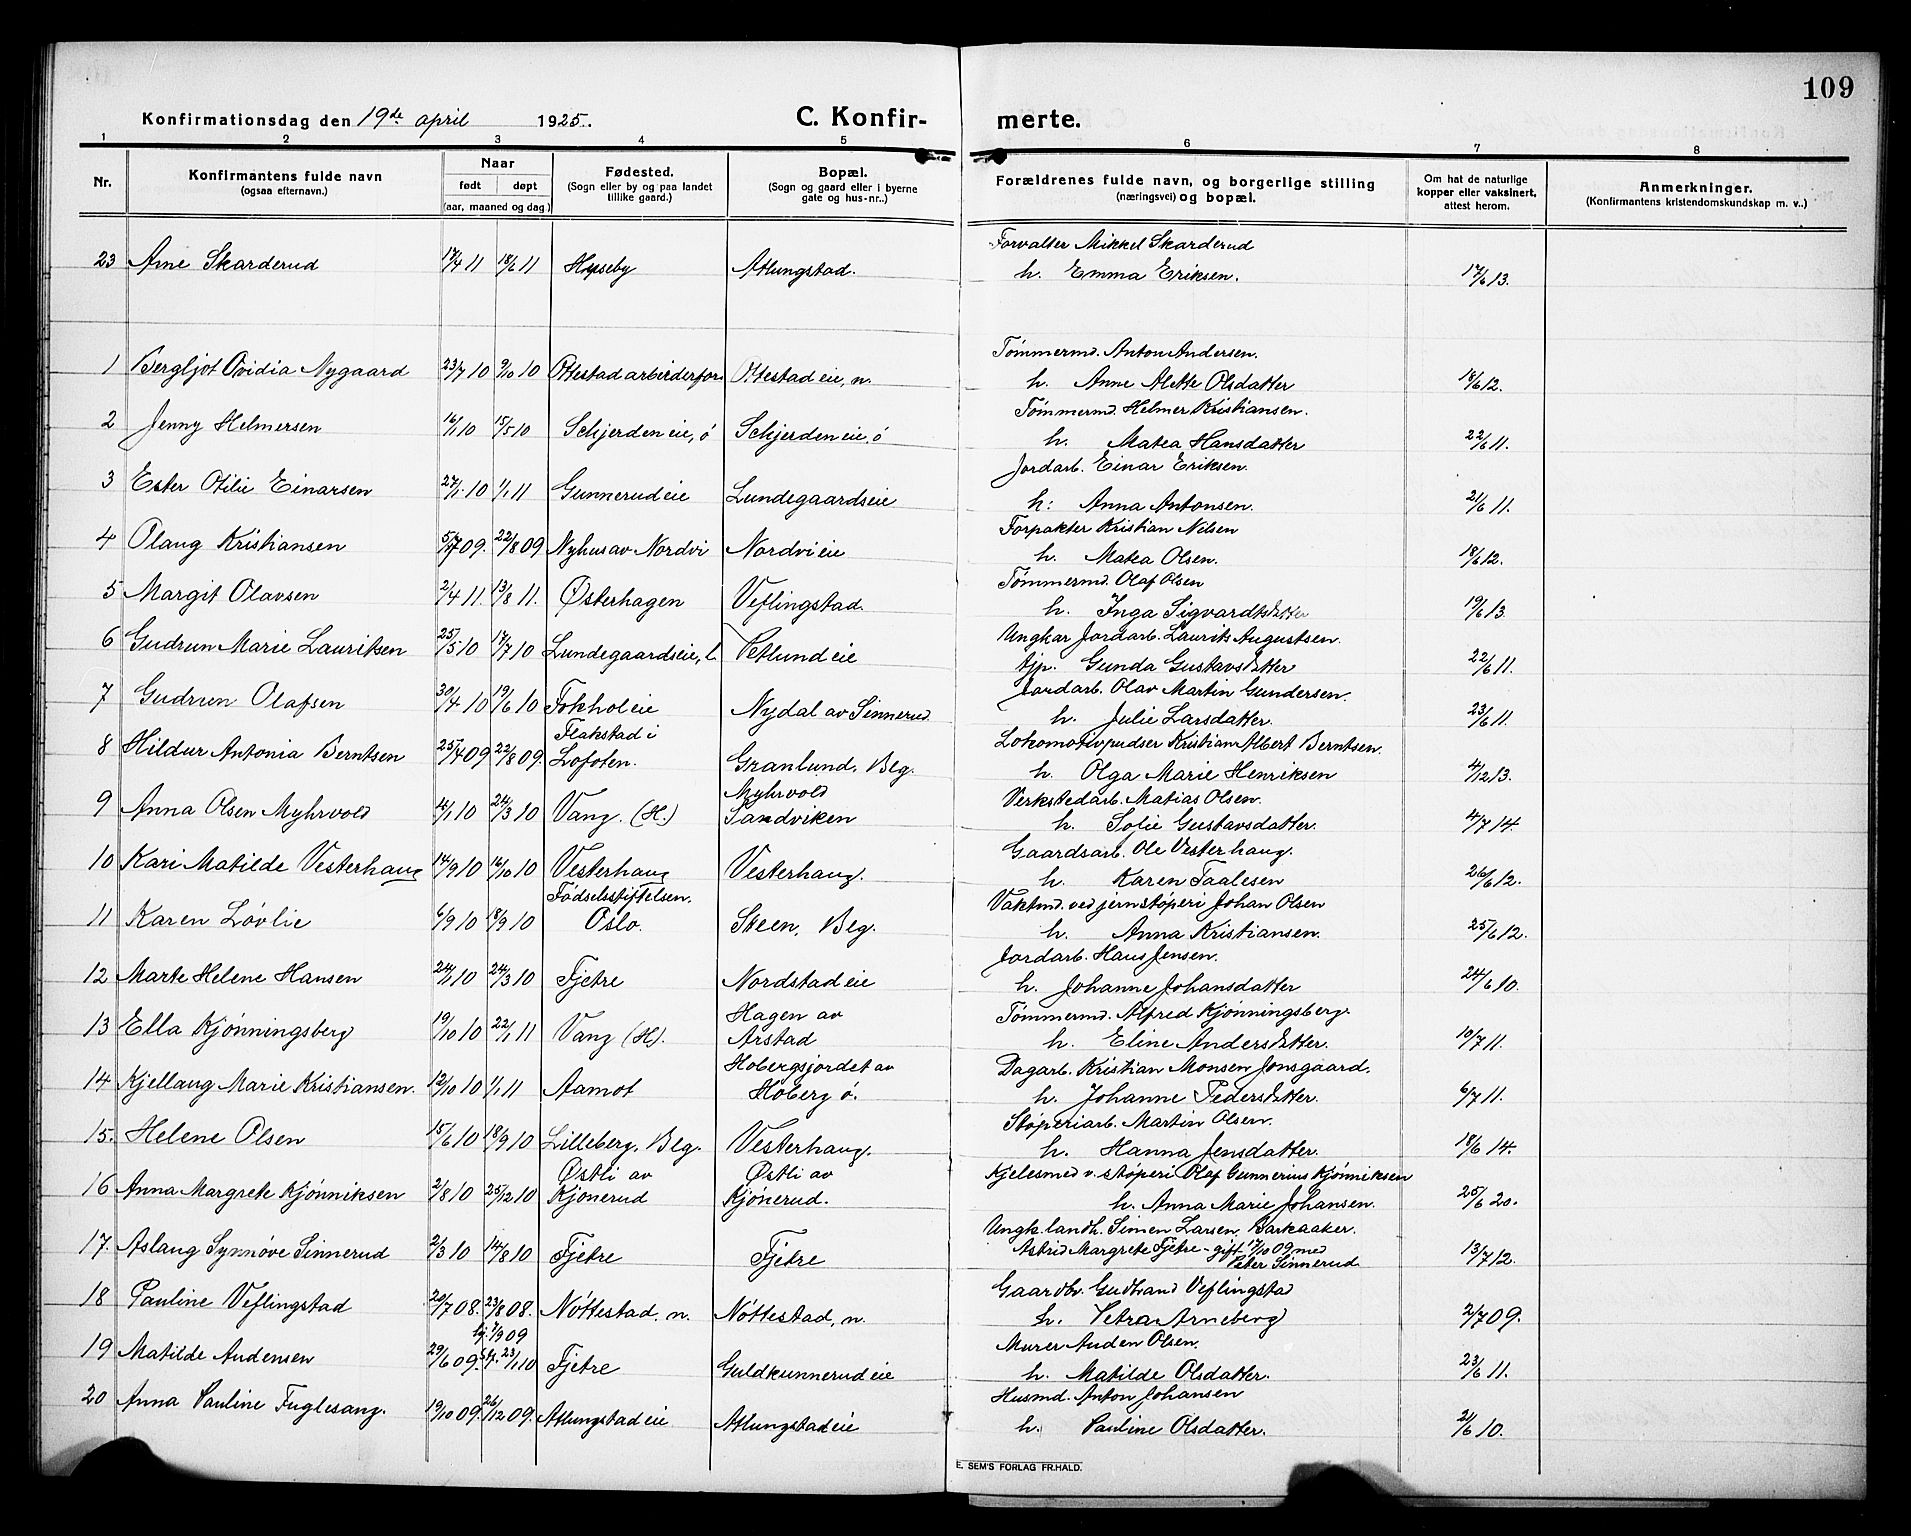 109
Konfirmationsdag den 19de april 1925. C. Konfirmerte.
1 2 3 4 5 6 7 8
Nr. Konfirmantens fulde navn (ogsaa efternavn.) Naar født døpt (aar, maaned og dag) Fødested. (Sogn eller by og paa landet tillike gaard.) Bopæl. (Sogn og gaard eller i byerne gate og hus-nr..) Forældrenes fulde navn, og borgerlige stilling (næringsvei) og bopæl. Om hat de naturlige kopper eller vaksinert, attest herom. Anmerkninger. (Konfirmantens kristendomskundskap m. v..)
Forvalter Mikkel Skarderud
23 Arne Skarderud 17/4 11 18/6 11 Hyseby Atlungstad. h. Emma Eriksen. 17/6 13.
Tømmermd. Anton Andersen.
1 Bergljot Ovidia Nygaard 23/7 10 9/10 10 Ottestad arbeiderfor. Ottestad eie, n. h. Anne Alette Olsdatter 18/6 12.
Tømmermd. Helmer Kristiansen.
2 Jenny Helmersen 16/1 10 15/5 10 Schjerden eie, ø Schjerden eie, ø h. Matea Hansdatter 22/6 11.
Jordarb. Einar Eriksen.
3 Ester Otilie Einarsen 27/1 10 1/1 11 Gunnerud eie Lundegaardseie h: Anna Antonsen. 21/6 11.
Forpakter Kristian Nilsen
4 Olaug Kristiansen 5/7 09. 22/8 09 Nyhus av Nordvi Nordvi eie h. Matea Olsen. 18/6 12.
Tømmermd. Olaf Olsen
5 Margit Olavsen 2/4 11. 13/8 11. Østerhagen Veflingstad. h. Inga Sigvardtsdatter 19/6 13.
Ungkar Jordarb. Laurits Augustsen.
6 Gudrun Marie Lauritsen 25/5 10 17/7 10 Lundegaardseie, l. Vetlund eie tjp. Gunda Gustavsdatter 22/6 11.
Jordarb. Olav Martin Gundersen.
7 Gudrun Olafsen 30/4 10 19/6 10 Fokhol eie Nydal av Sinnerud h. Julie Larsdatter. 23/6 11.
Flakstad i Lokomotivpudser Kristian Albert Berntsen.
8 Hildur Antonia Berntsen 25/4 09 22/8 09. Lofoten. Granlund, Blg. h. Olga Marie Henriksen 4/12 13.
Myhrvold Verkstedarb. Matias Olsen.
9 Anna Olsen Myhrvold 14/1 10 24/3 10 Vang. (H.) Sandviken h. Solie Gustavsdatter. 4/7 14.
Gaardsarb. Ole Vesterhaug.
10 Kari Matilde Vesterhaug 14/9 10 16/10 10 Vesterhaug Vesterhaug. h. Karen Taalesen 26/6 12.
Fødselsstiftelsen. Vaktmd. ved jernstøperi Johan Olsen
11 Karen Løvlie 6/9 10 18/9 10 Oslo. Steen, Blg. h. Anna Kristiansen. 25/6 12.
Jordarb. Hans Jensen.
12 Marte Helene Hansen 24/1 10 24/3 10 Fjetre Nordstad eie h. Johanne Johansdatter 24/6 10.
Hagen av Tømmermd. Alfred Kjønningsberg.
13 Ella Kjønningsberg 19/10 10 22/1 11 Vang (H). Arstad h. Eline Andersdatter. 10/7 11.
Hobergsjordet av Dagarb. Kristian Monsen Jonsgaard.
14 Kjellaug Marie Kristiansen. 12/10 10 1/1 11 Aamot Hoberg ø. h. Johanne Pedersdatter. 6/7 11.
Støperiarb. Martin Olsen.
15. Helene Olsen 15/6 10 18/9 10 Lilleberg, Blg. Vesterhaug. h. Hanna Jensdatter. 18/6 14.
Østli av Østli av Kjelesmed v. støperi Olaf Gunnerius Kjønniksen
16 Anna Margrete Kjønniksen 2/8 10 25/12 10 Kjønerud Kjønerud. h. Anna Marie Johansen. 25/6 20.
Ungk. landh. Simen Larsen, Barkaaker.
17. Aslaug Synnøve Sinnerud 2/3 10 14/8 10 Fjetre Fjetre Astrid Margrete Fjetre - gift 17/10 09 med 13/7 12.
Peter Sinnerud.
Gaardbr. Gudbrand Veflingstad
18 Pauline Veflingstad 20/7 08. 23/8 08. Nøttestad, n. Nøttestad, n. h. Petra Arneberg 2/7 09.
hj. 7/9 09 Murer Auden Olsen.
19 Matilde Audensen 29/6 09. st. 23/1 10 Fjetre Guldkunnerud eie h. Matilde Olsdatter. 23/6 11.
Husmd. Anton Johansen
20 Anna Pauline Fuglesang. 19/10 09. 26/12 09. Atlungstad eie Atlungstad eie h. Pauline Olsdatter. 21/6 10.
E. SEM'S FORLAG FR.HALD.